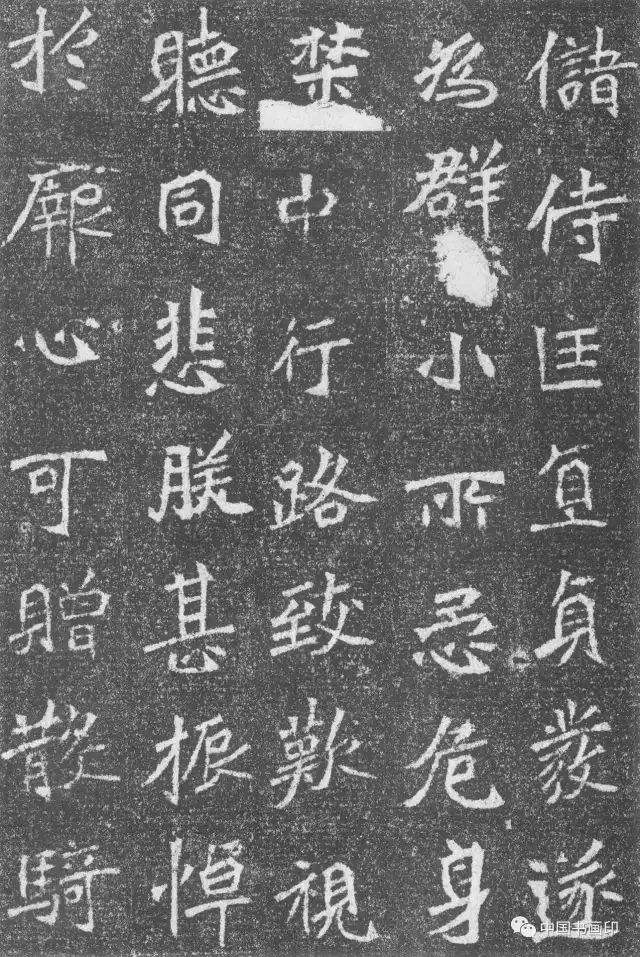 儲侍匡直貞發遂
為群小所忌危身
禁中行路致歎視
聽同悲朕甚振悼
於厥心可贈散騎
中国书画印